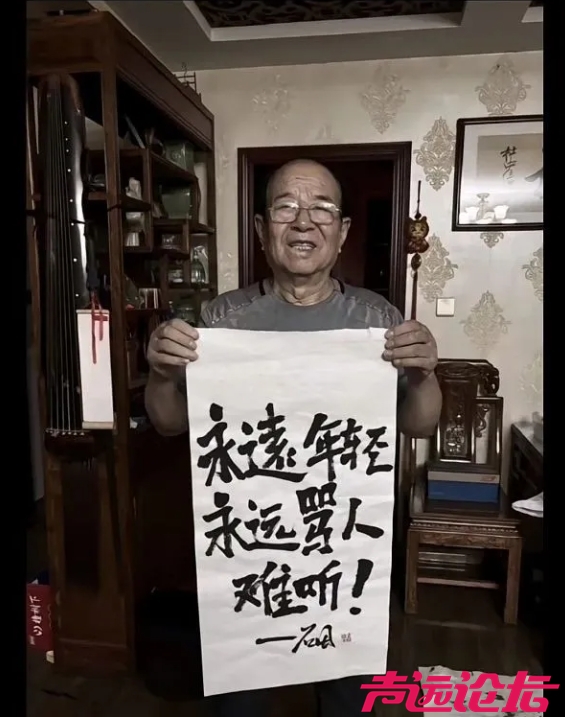 永遠年轻
永远骂人
难听！
声远论坛